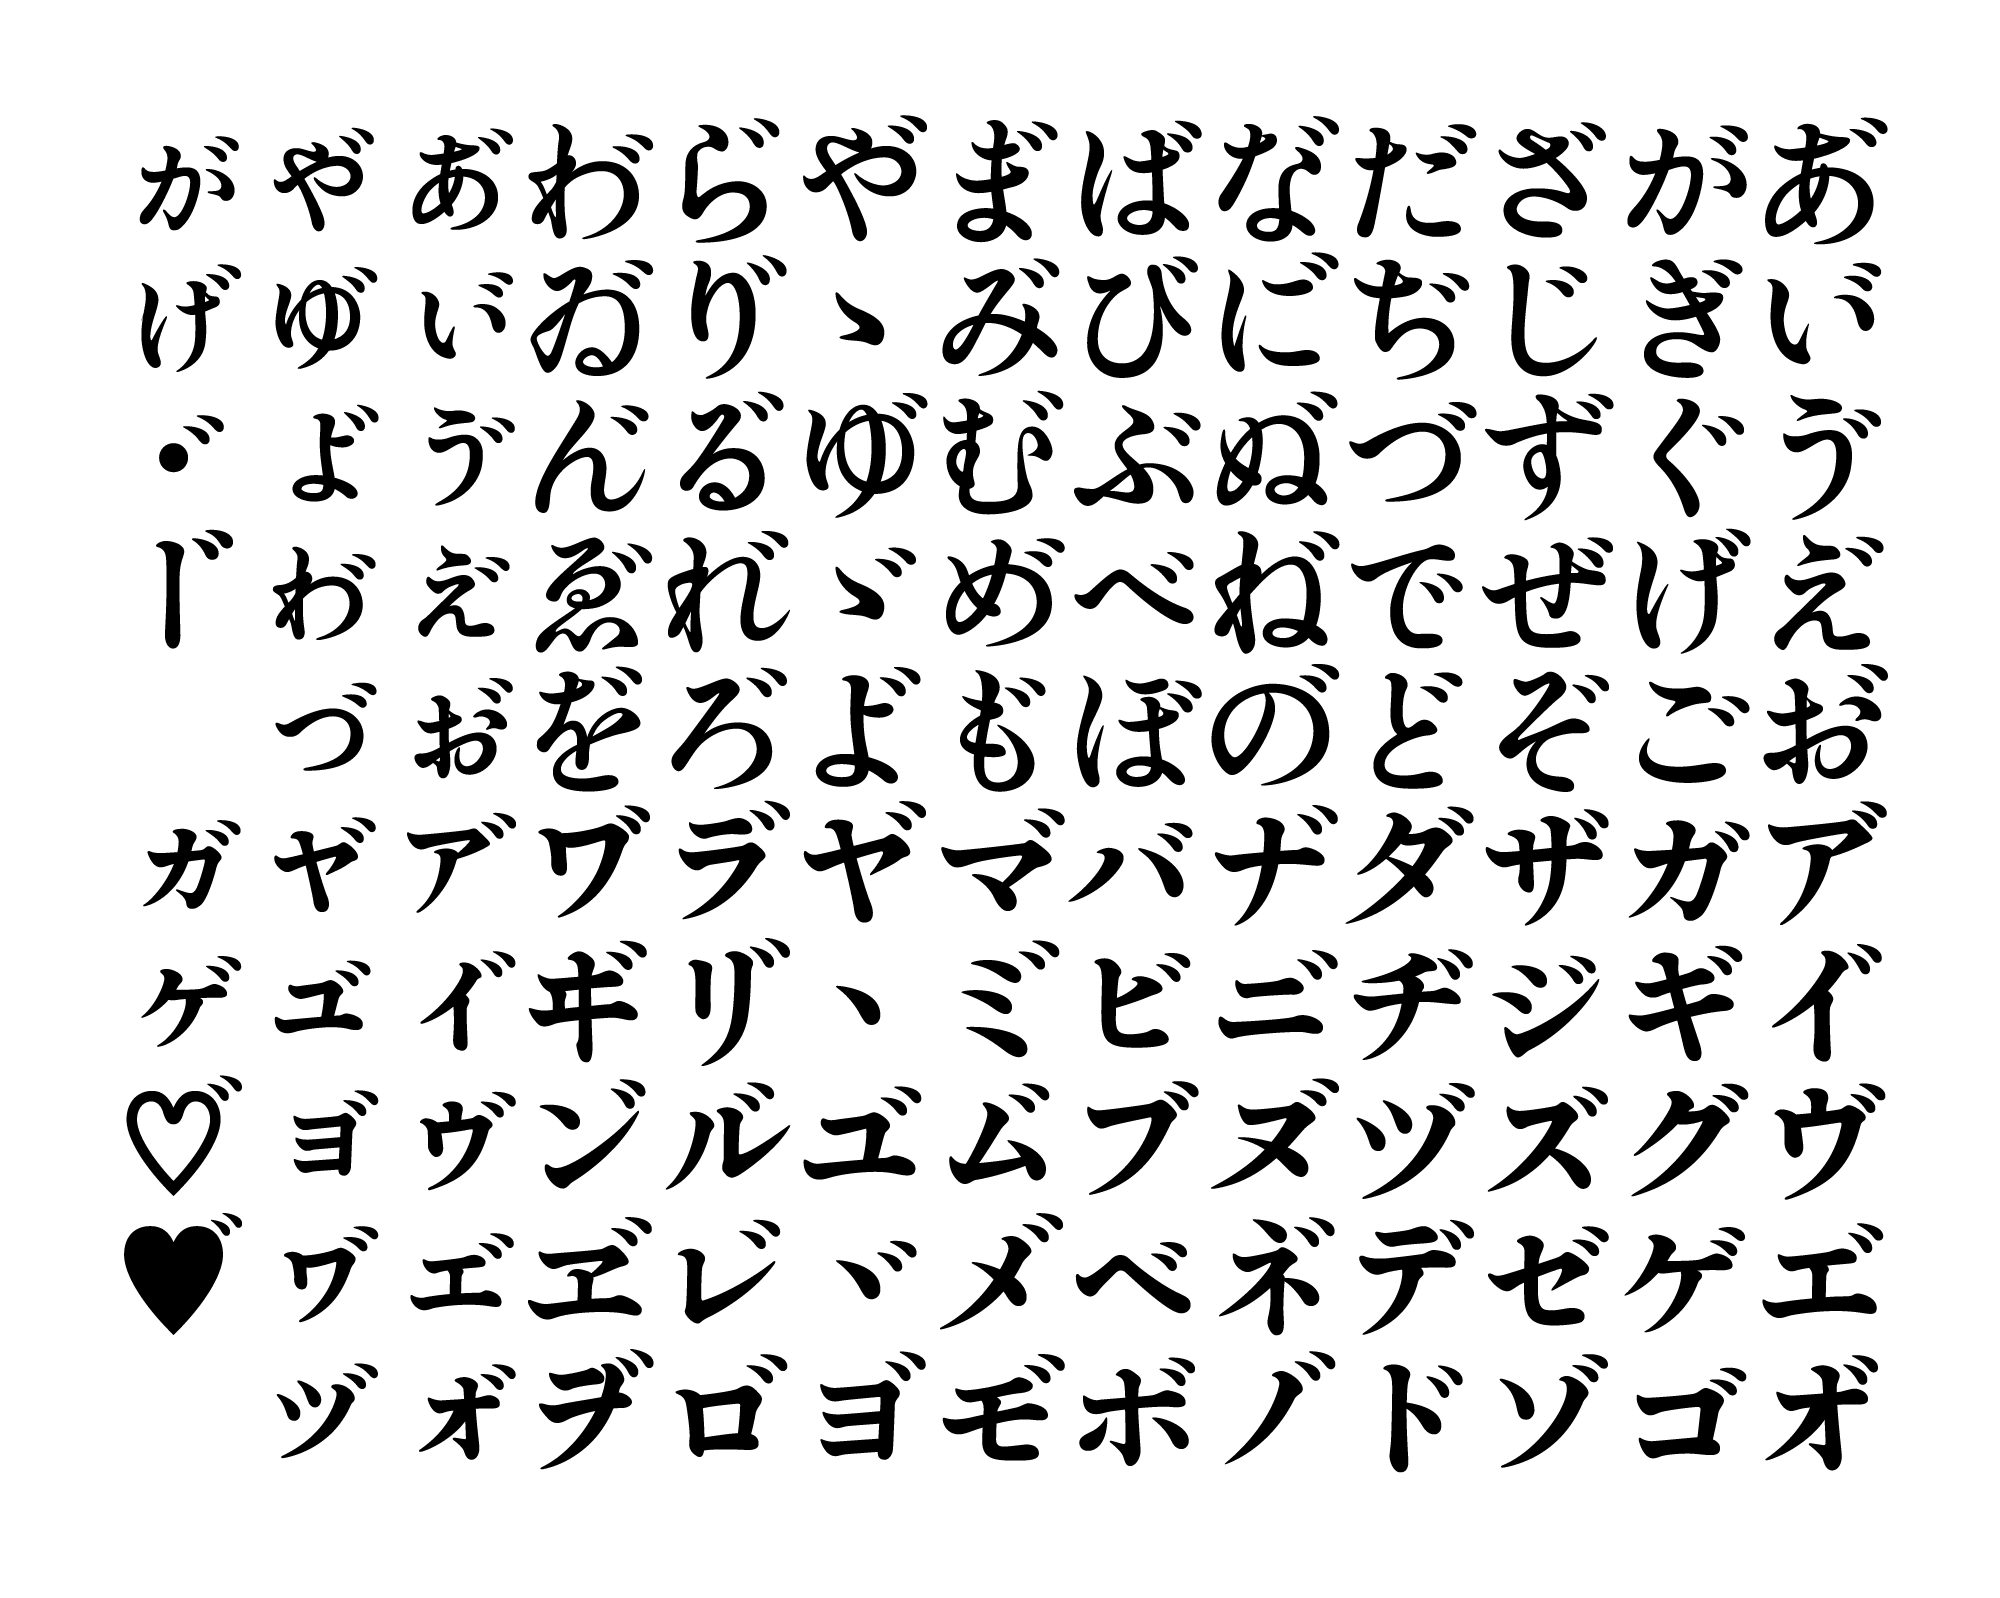 あ゙い゙ゔえ゙お゙ア゙イ゙ヴエ゙オ゙
がぎぐげごガギグゲゴ
ざじずぜぞザジズゼゾ
だぢづでどダヂヅデド
な゙に゙ぬ゙ね゙の゙ナ゙ニ゙ヌ゙ネ゙ノ゙
ばびぶべぼバビブベボ
ま゙み゙む゙め゙も゙マ゙ミ゙ム゙メ゙モ゙
や゙ゝゆ゙ゞよ゙ヤ゙ヽユ゙ヾヨ゙
ら゙り゙る゙れ゙ろ゙ラ゙リ゙ル゙レ゙ロ゙
わ゙ゐ゙ん゙ゑ゙を゙ヷヸン゙ヹヺ
ぁ゙ぃ゙ぅ゙ぇ゙ぉ゙ァ゙ィ゙ゥ゙ェ゙ォ゙
ゃ゙ゅ゙ょ゙ゎ゙っ゙ャ゙ュ゙ョ゙ヮ゙ッ゙
ゕ゙ゖ゙・゙ー゙ヵ゙ヶ゙♡゙♥゙